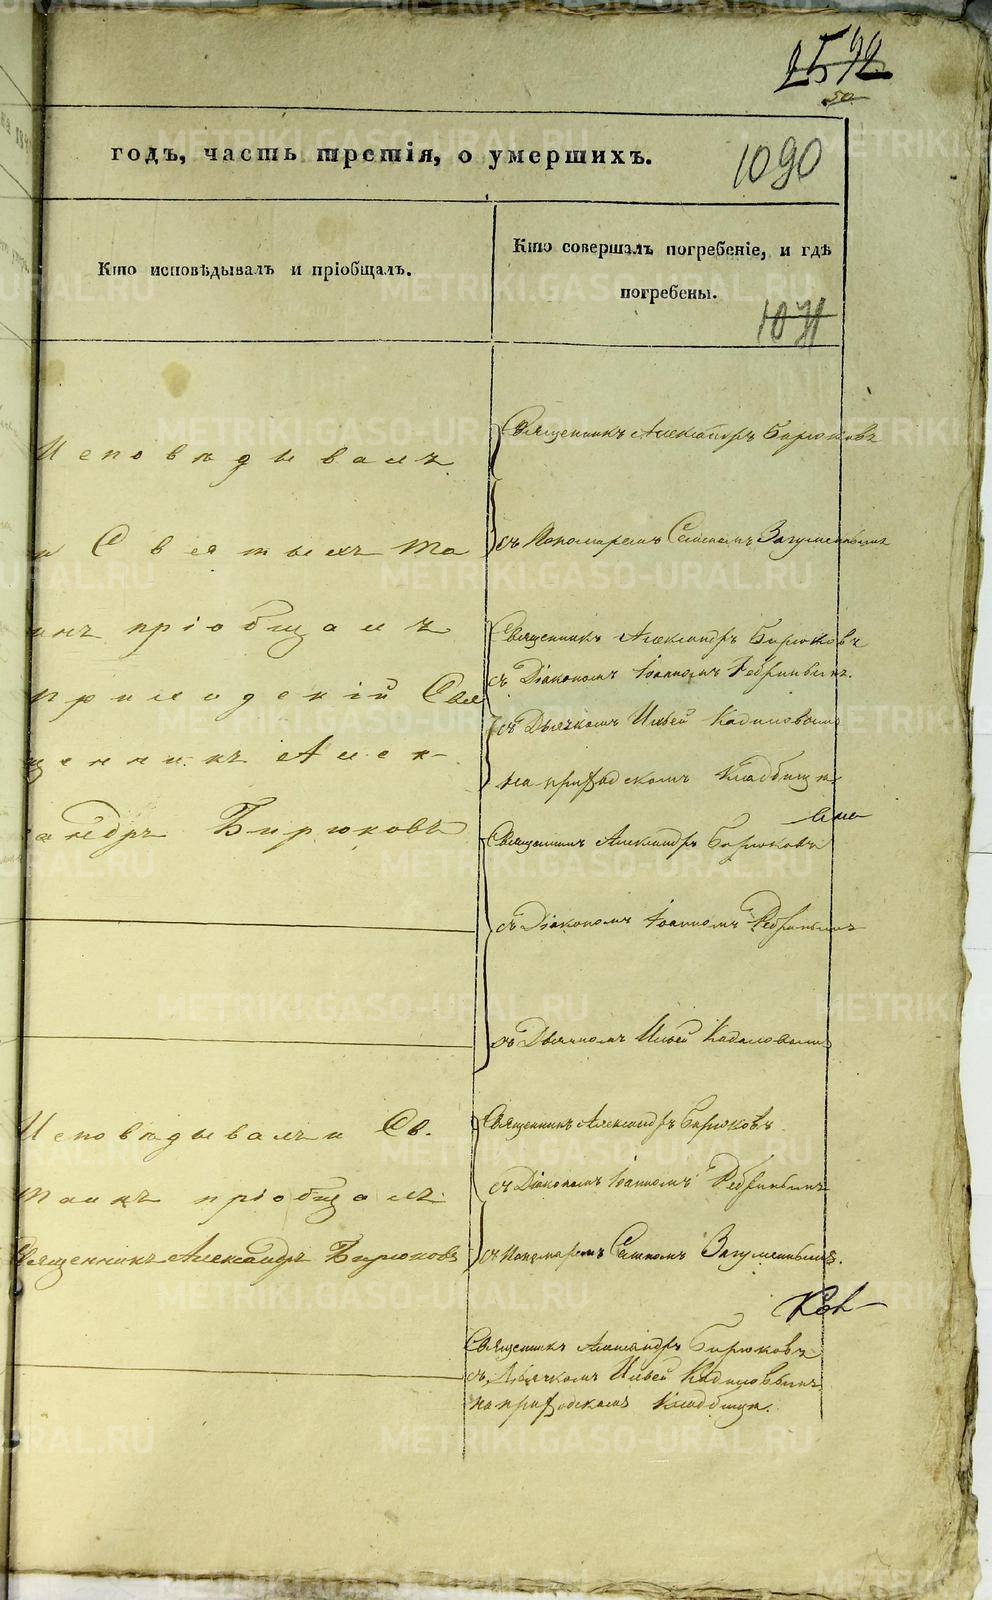 2592
50
годъ, часть третія, о умершихъ.
1090
Кто исповѣдывалъ и пріобщалъ.
Кто совершалъ погребеніе, и гдѣ
погребены.
Исповѣдывалъ
и Святыхъ Та
инъ пріобщалъ
приходскій Свя
щенникъ Алек
сандръ Бирюковъ
Исповѣдывалъ и Св.
Таинъ пріобщалъ
Священникъ Александръ Бирюковъ
Священникъ Александръ Бирюковъ
съ Пономаремъ Загуменнымъ
Священникъ Александръ Бирюковъ
съ Діакономъ Іоанномъ Ребринымъ.
съ Дьячкомъ Ильей Кадиловымъ
на приходскомъ кладбищѣ
Священникъ Александръ Бирюковъ
съ Діакономъ Іоанномъ Ребринымъ
съ Дьячкомъ Ильей Кадиловымъ
Священникъ Александръ Бирюковъ
съ Діакономъ Іоанномъ Ребринымъ
съ Пономаремъ Загуменнымъ.
Священникъ Александръ Бирюковъ
съ Дьячкомъ Ильей Кадиловымъ
на приходскомъ кладбищѣ.
METRIKI.GASO-URAL.RU